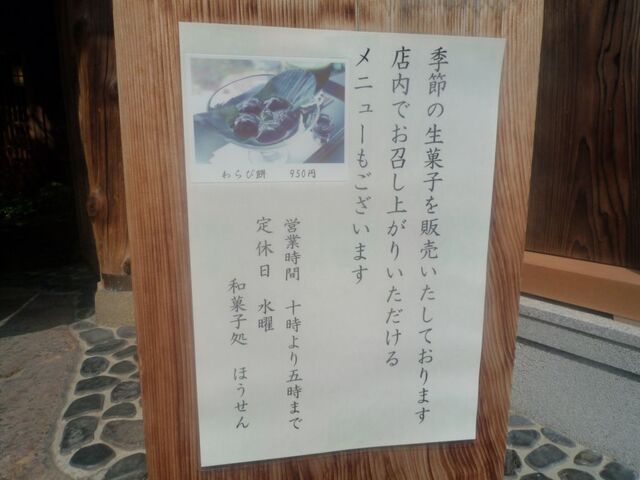 季節の生菓子を販売いたしております
店内でお召し上がりいただける
メニューもございます
わらび餅 950円
営業時間 十時より五時まで
定休日 水曜
和菓子処 ほうせん